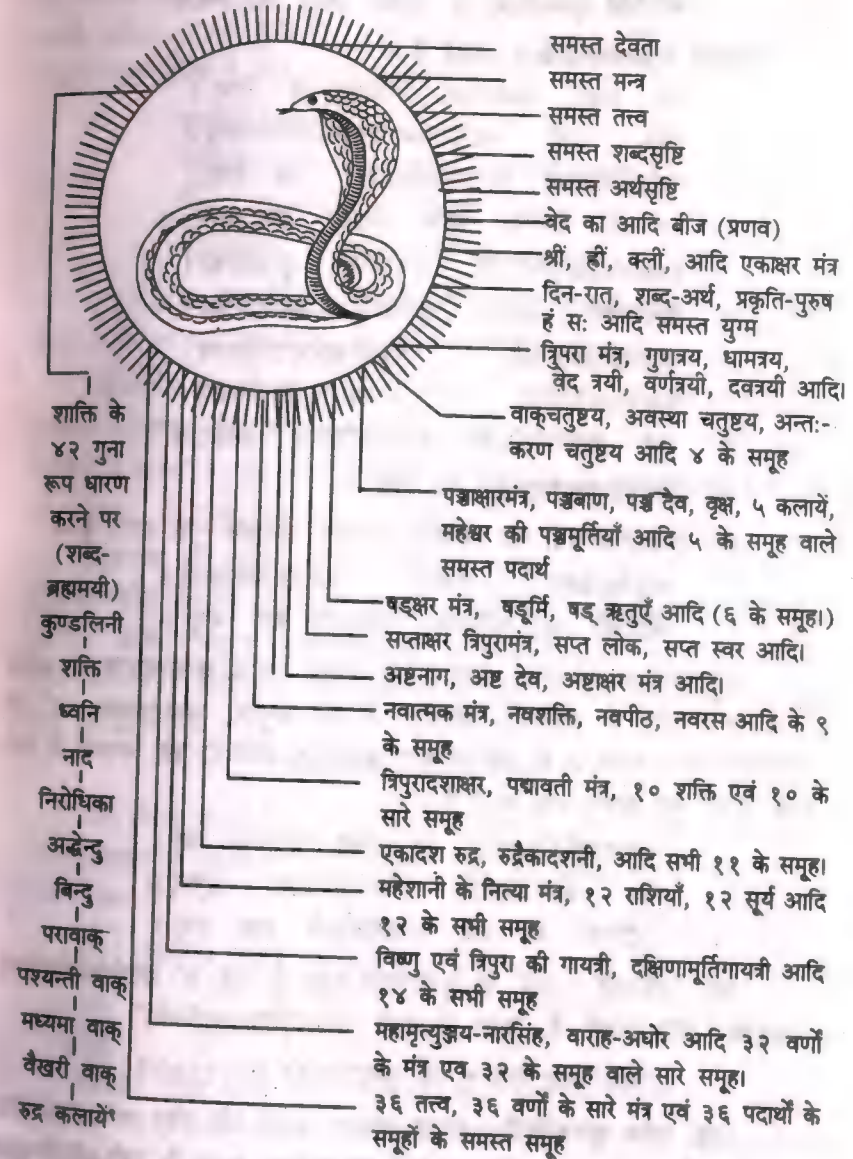 समस्त देवता
समस्त मन्त्र
समस्त तत्त्व
समस्त शब्दसृष्टि
समस्त अर्थसृष्टि
वेद का आदि बीज (प्रणव)
श्रीं, ह्रीं, क्लीं, आदि एकाक्षर मंत्र
दिन-रात, शब्द-अर्थ, प्रकृति-पुरुष
हं सः आदि समस्त युग्म
त्रिपरा मंत्र, गुणत्रय, धामत्रय,
वेद त्रयी, वर्णत्रयी, दवत्रयी आदि।
वाक्चतुष्टय, अवस्था चतुष्टय, अन्तः-
करण चतुष्टय आदि ४ के समूह
पञ्चाक्षारमंत्र, पञ्चबाण, पञ्च देव, वृक्ष, ५ कलायें,
महेश्वर की पञ्चमूर्तियाँ आदि ५ के समूह वाले
समस्त पदार्थ
षड्क्षर मंत्र, षडूर्मि, षड् ऋतुएँ आदि (६ के समूह।)
सप्ताक्षर त्रिपुरामंत्र, सप्त लोक, सप्त स्वर आदि।
अष्टनाग, अष्ट देव, अष्टाक्षर मंत्र आदि।
नवात्मक मंत्र, नवशक्ति, नवपीठ, नवरस आदि के ९
के समूह
त्रिपुरादशाक्षर, पद्मावती मंत्र, १० शक्ति एवं १० के
सारे समूह
एकादश रुद्र, रुद्रैकादशनी, आदि सभी ११ के समूह।
महेशानी के नित्या मंत्र, १२ राशियाँ, १२ सूर्य आदि
१२ के सभी समूह
विष्णु एवं त्रिपुरा की गायत्री, दक्षिणामूर्तिगायत्री आदि
१४ के सभी समूह
महामृत्युञ्जय-नारसिंह, वाराह-अघोर आदि ३२ वर्णों
के मंत्र एव ३२ के समूह वाले सारे समूह।
३६ तत्व, ३६ वर्णों के सारे मंत्र एवं ३६ पदार्थों के
समूहों के समस्त समूह
शाक्ति के
४२ गुना
रूप धारण
करने पर
(शब्द-
ब्रह्ममयी)
कुण्डलिनी
शक्ति
ध्वनि
नाद
निरोधिका
अर्द्धेन्दु
बिन्दु
परावाक्
पश्यन्ती वाक्
मध्यमा वाक्
वैखरी वाक्
रुद्र कलायें१